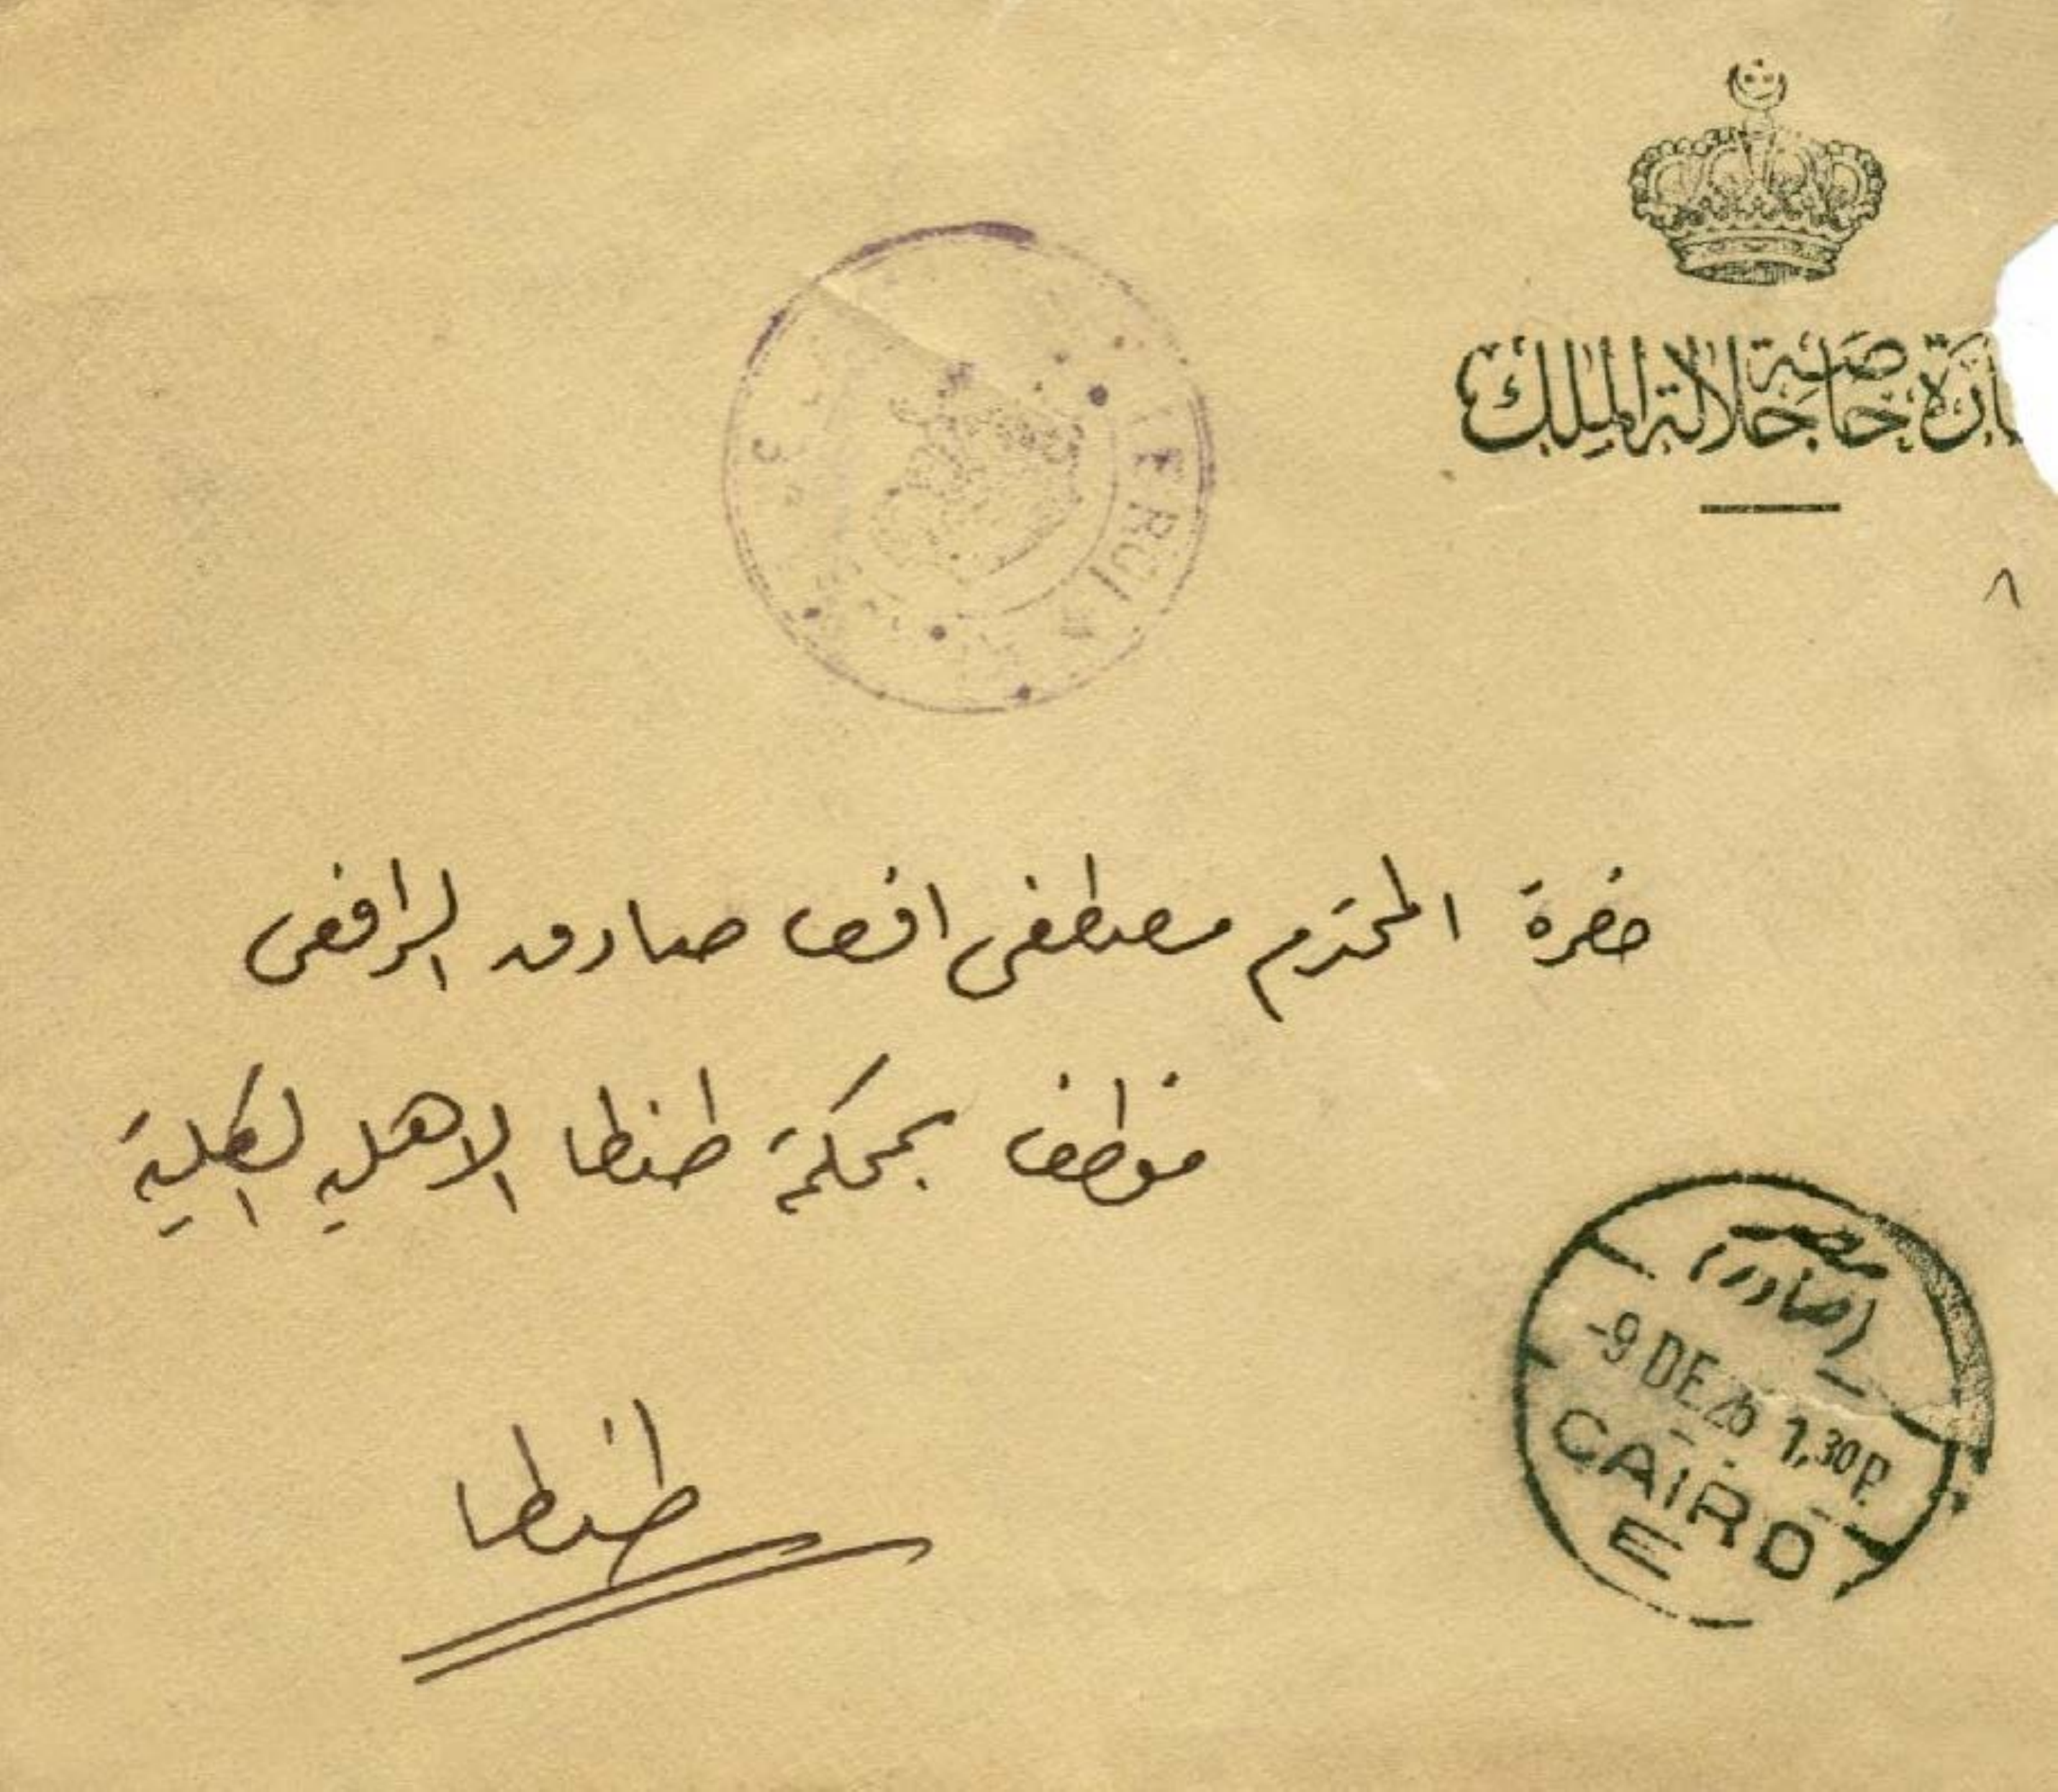 ارة خاصة جلالة الملك
٨
حضرة المحترم مصطفى افندى صادق الرافعى
موظف بمحكمة طنطا الاهليه الكلية
طنطا
مصر
(صادر)
-9 DE 26 1.30 P.
CAIRO
E